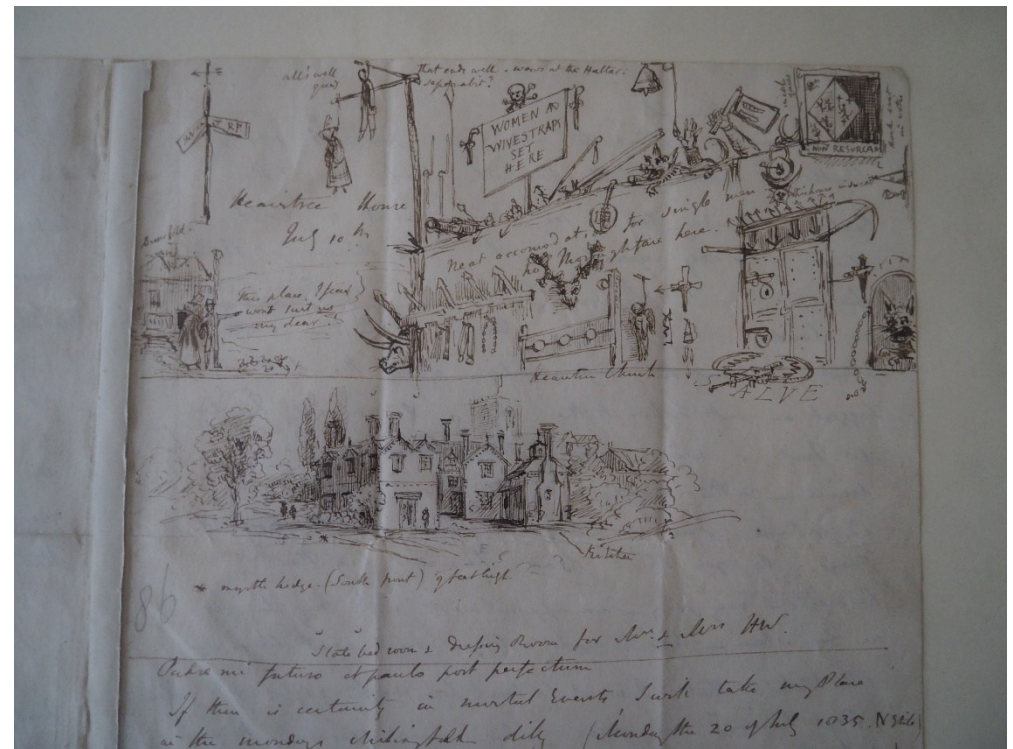 all's well
That ends well.
WOMEN AD
WIVESTRAPS
SET
HERE
NON RESURGAM
Heavitree House
July 10th
Neat accomodat. for single men
no Thoroughfare here.
This place, I find
wont suit us
my dear!
Heavitree Church
ALVE
Kitchen
* myrtle hedge. (South front) 9 feet high.
State bed room & Dressing Room for Mr. & Mrs HW.
futuro et paulo post perfectum
If there is certainty in mortal Events, I wish take my Place
in the mondays dilly (Monday the 20 of July 1835 N Stile)
86